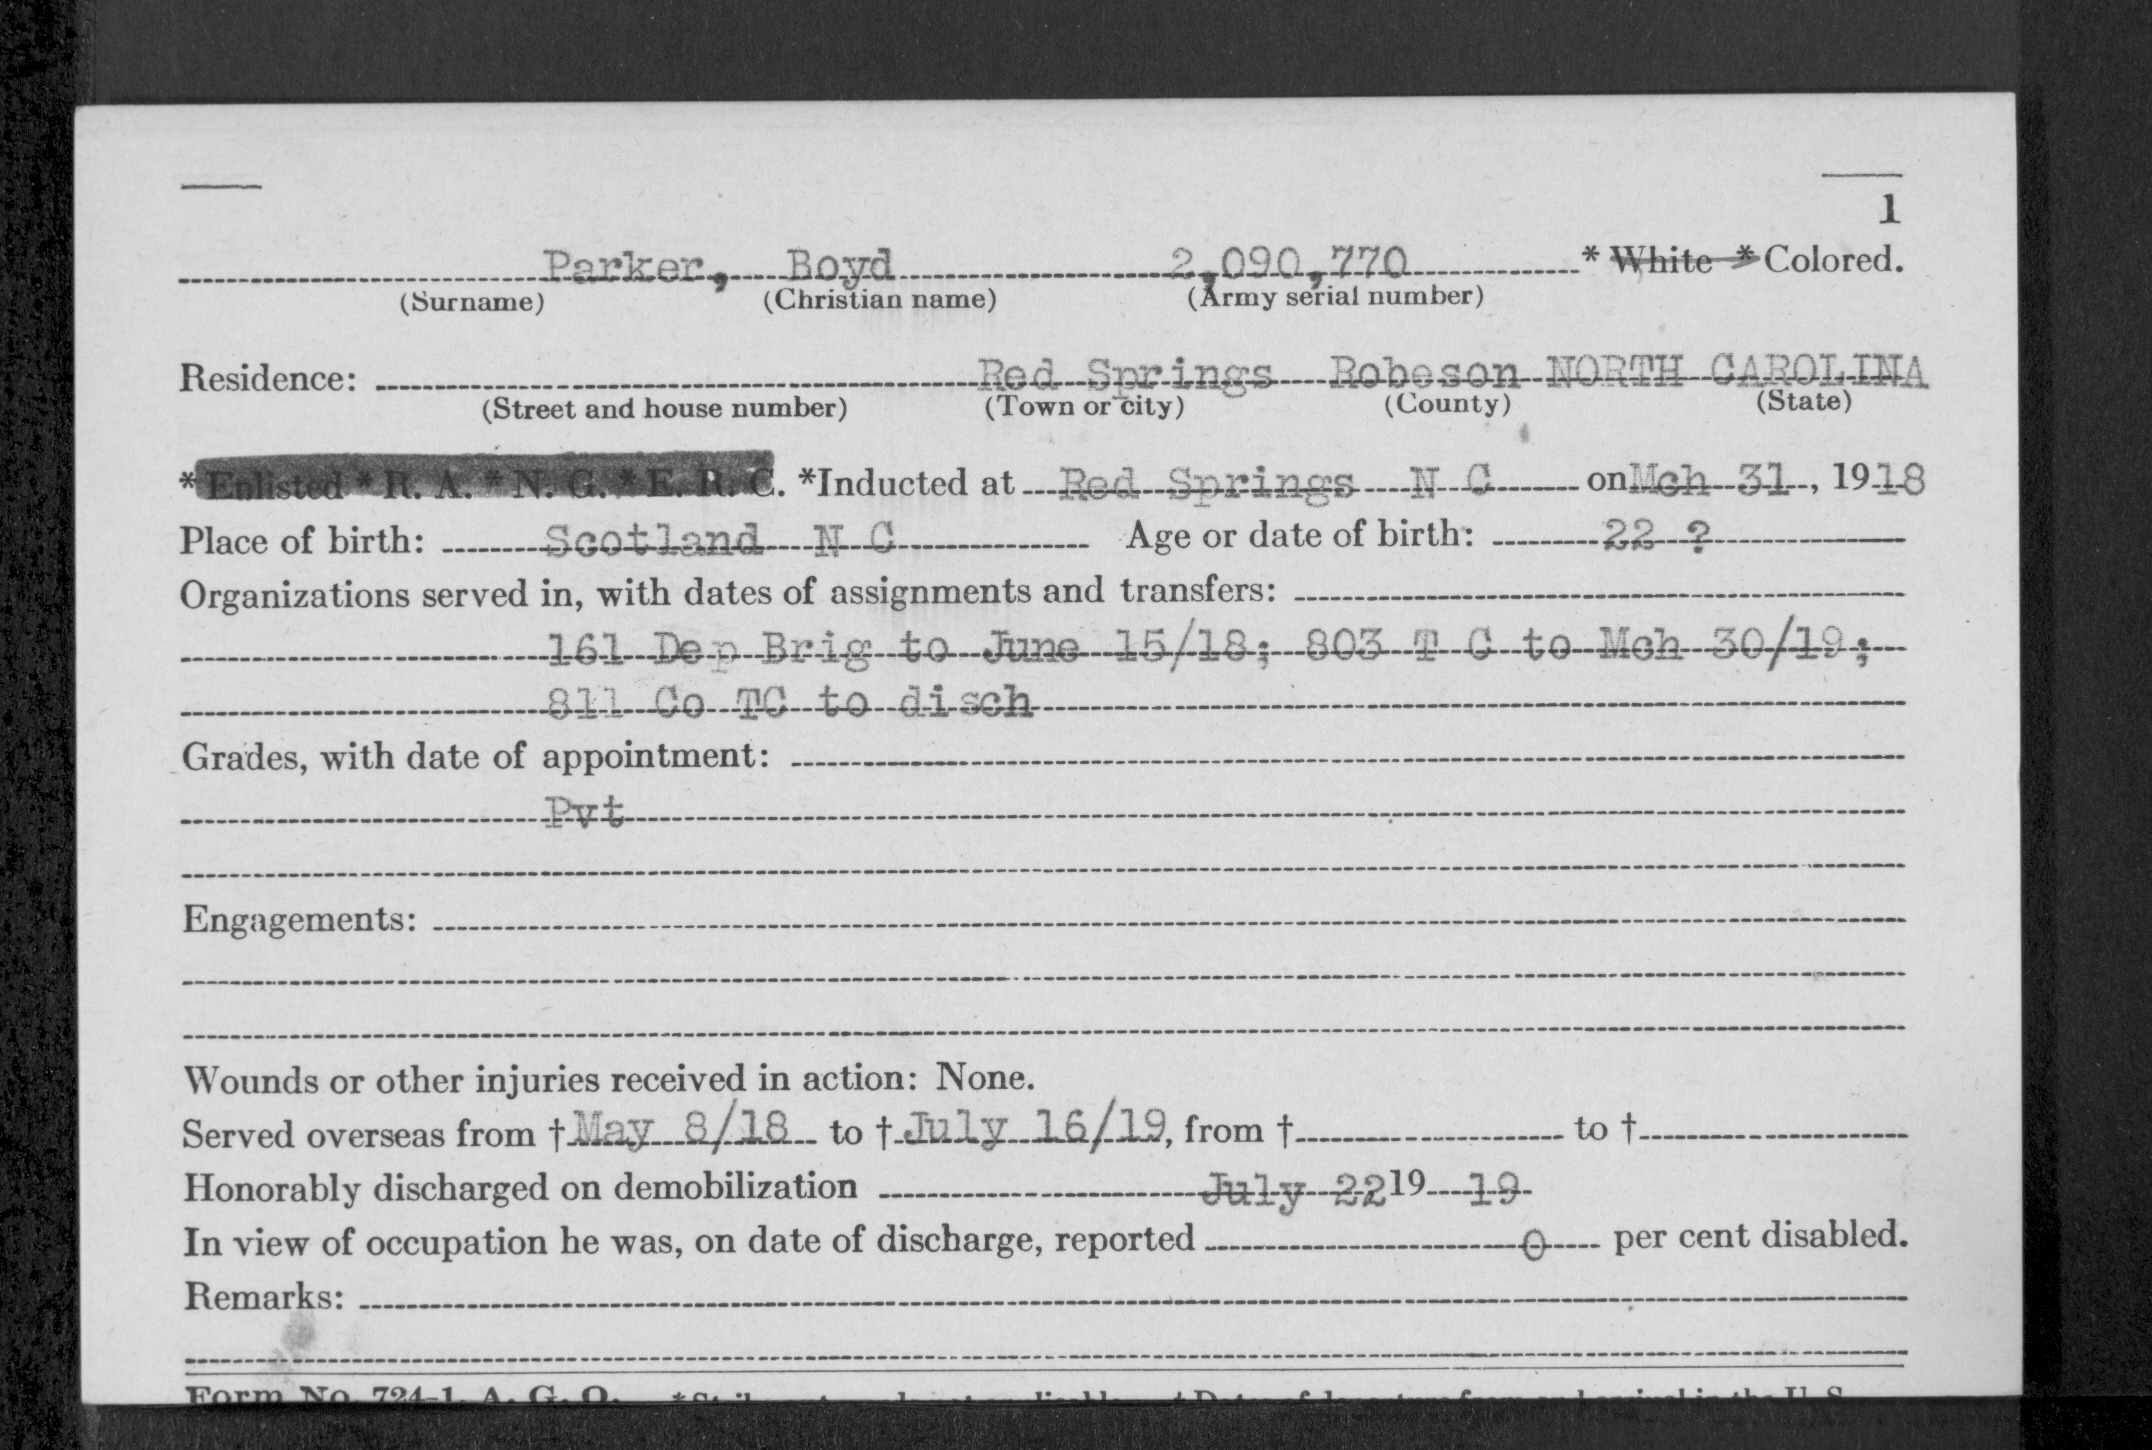 1
Parker, Boyd 2,090,770 * White * Colored.
(Surname) (Christian name) (Army serial number)
Residence: Red Springs Robeson NORTH CAROLINA
(Street and house number) (Town or city) (County) (State)
* Enlisted * R. A. * N. G. * E. R. C. *Inducted at Red Springs N C on Mch 31, 1918
Place of birth: Scotland N C Age or date of birth: 22 ?
Organizations served in, with dates of assignments and transfers:
161 Dep Brig to June 15/18; 803 T C to Mch 30/19;
811 Co TC to disch
Grades, with date of appointment:
Pvt
Engagements:
Wounds or other injuries received in action: None.
Served overseas from † May 8/18 to † July 16/19, from † to †
Honorably discharged on demobilization July 22, 19 19
In view of occupation he was, on date of discharge, reported 0 per cent disabled.
Remarks:
Form No. 724-1, A. G. O.